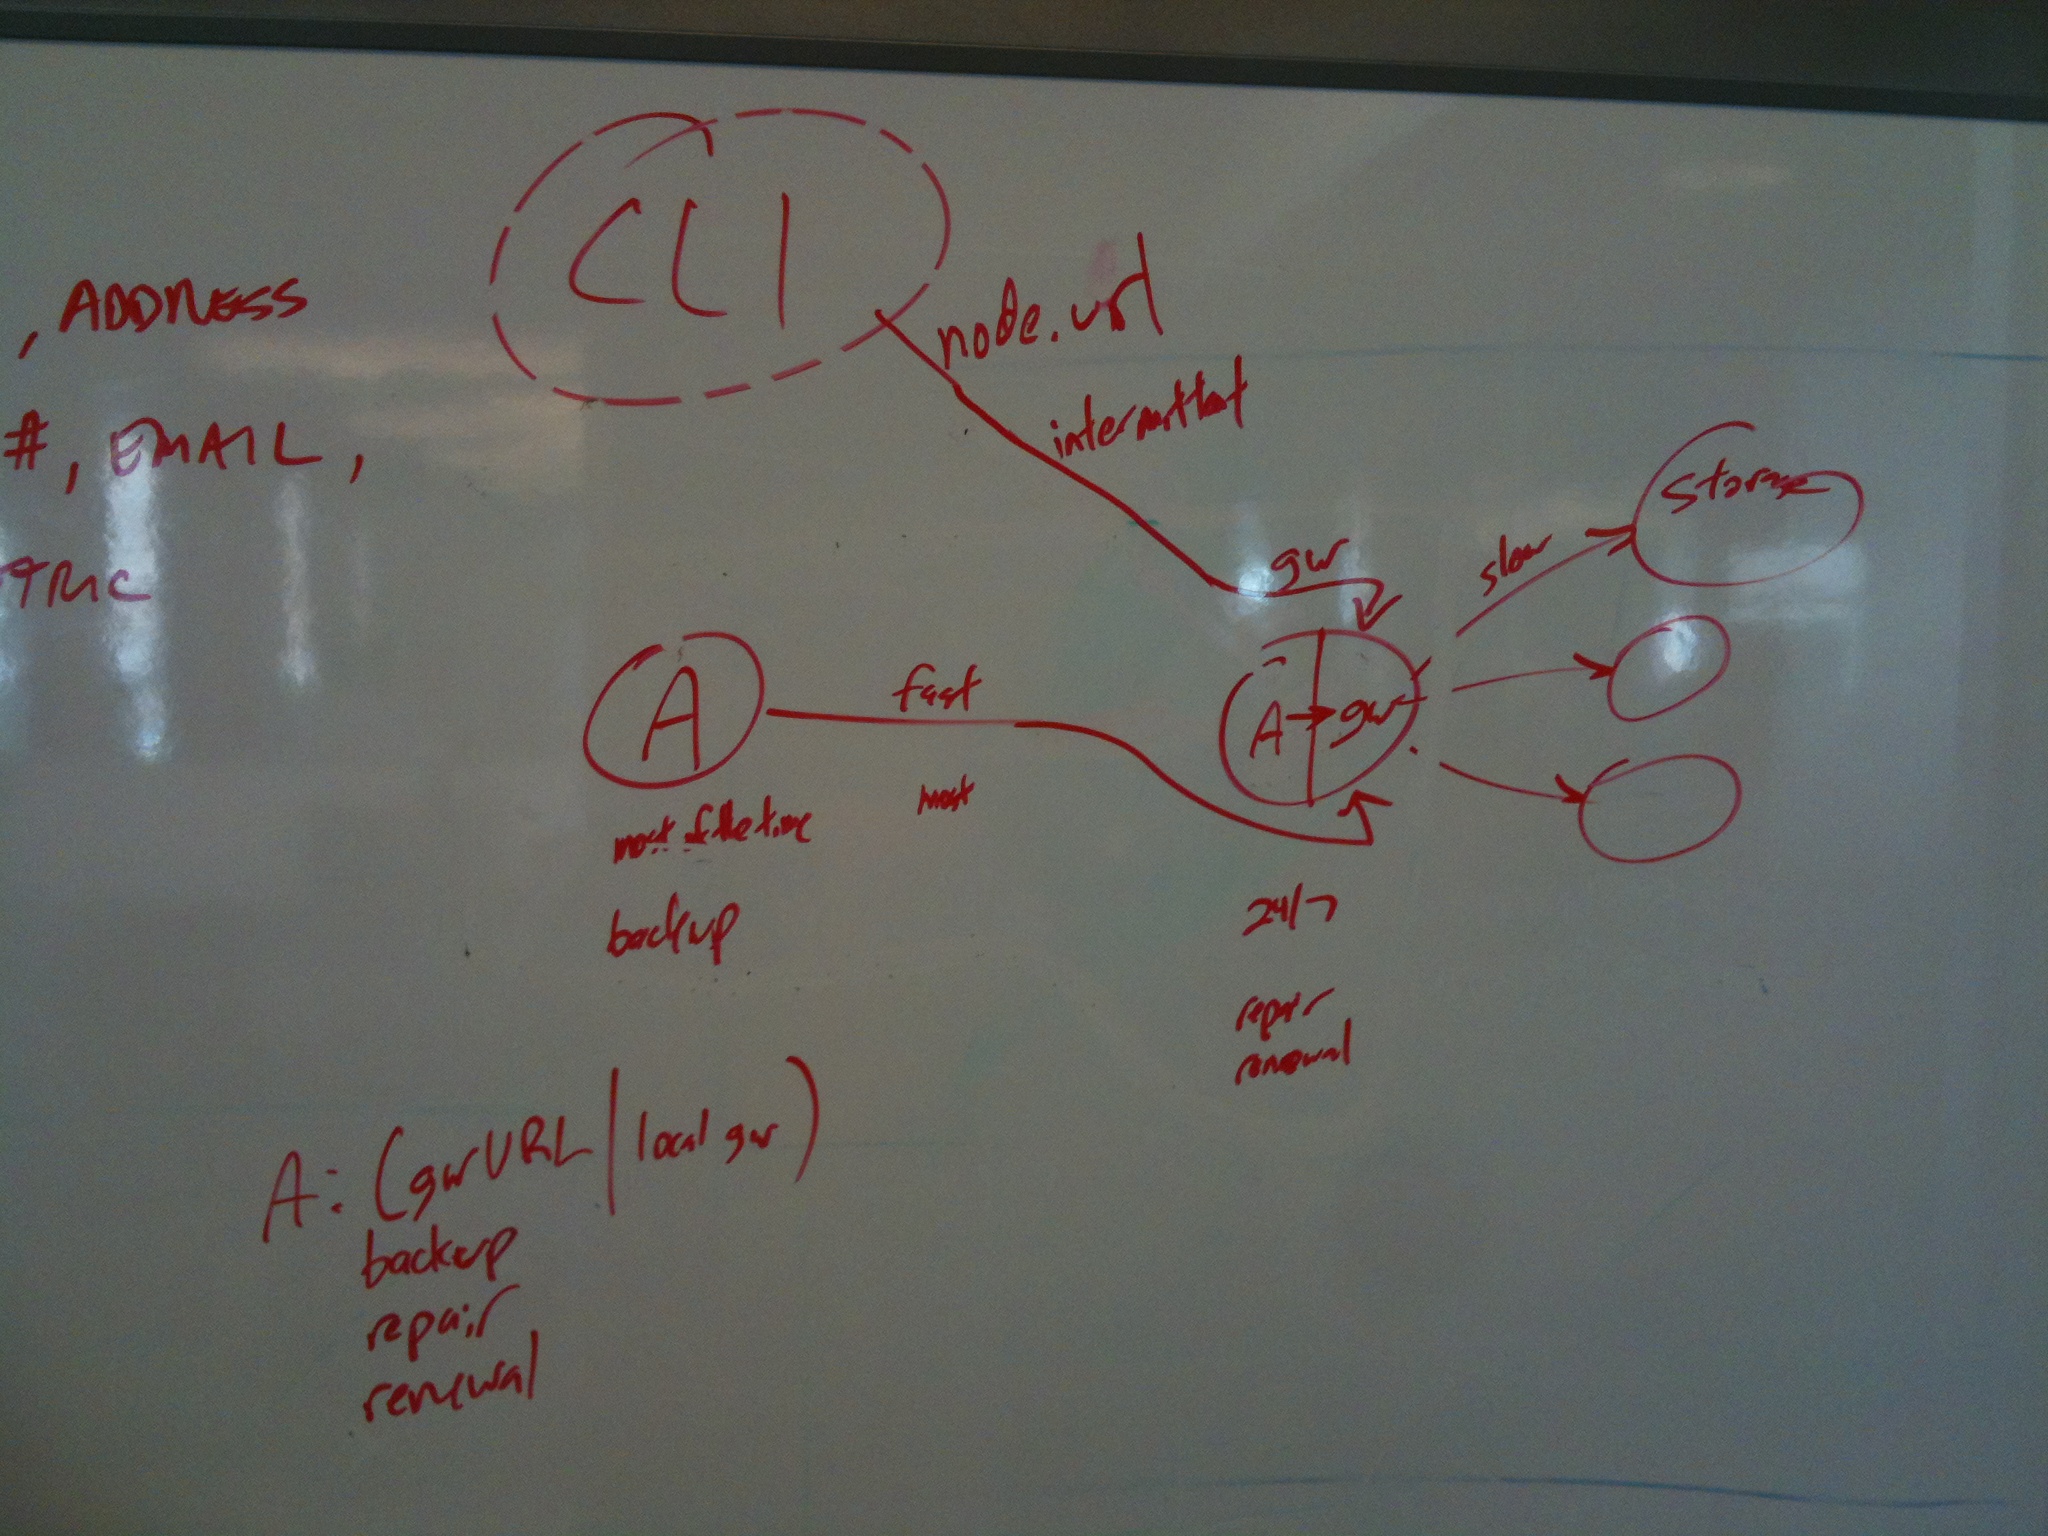 CLI
, ADDRESS
node.url
#, EMAIL,
intermittent
storage
gw
slow
TRIC
A
fast
A → gw
most of the time
most
24/7
backup
repair
renewal
A: (gwURL | local gw)
backup
repair
renewal